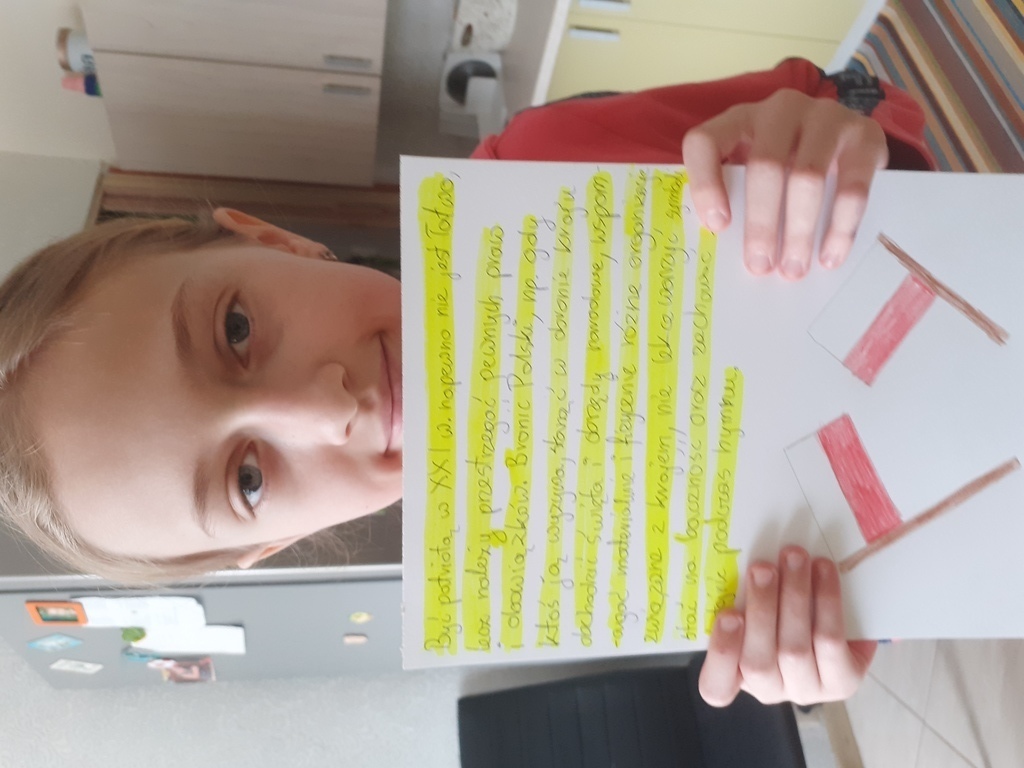 Być patriotą w XXI w. napewno nie jest łatwo,
lecz należy przestrzegać pewnych praw
i obowiązków. Bronić Polski, np. gdy
ktoś ją wyzywa, stanąć w obronie kraju
obchodzić święta i obrzędy narodowe, wspom-
agać materialnie i fizycznie różne organizacje
związane z krajem, nie lekceważyć symboli
stać na baczność oraz zachować
podczas hymnu.